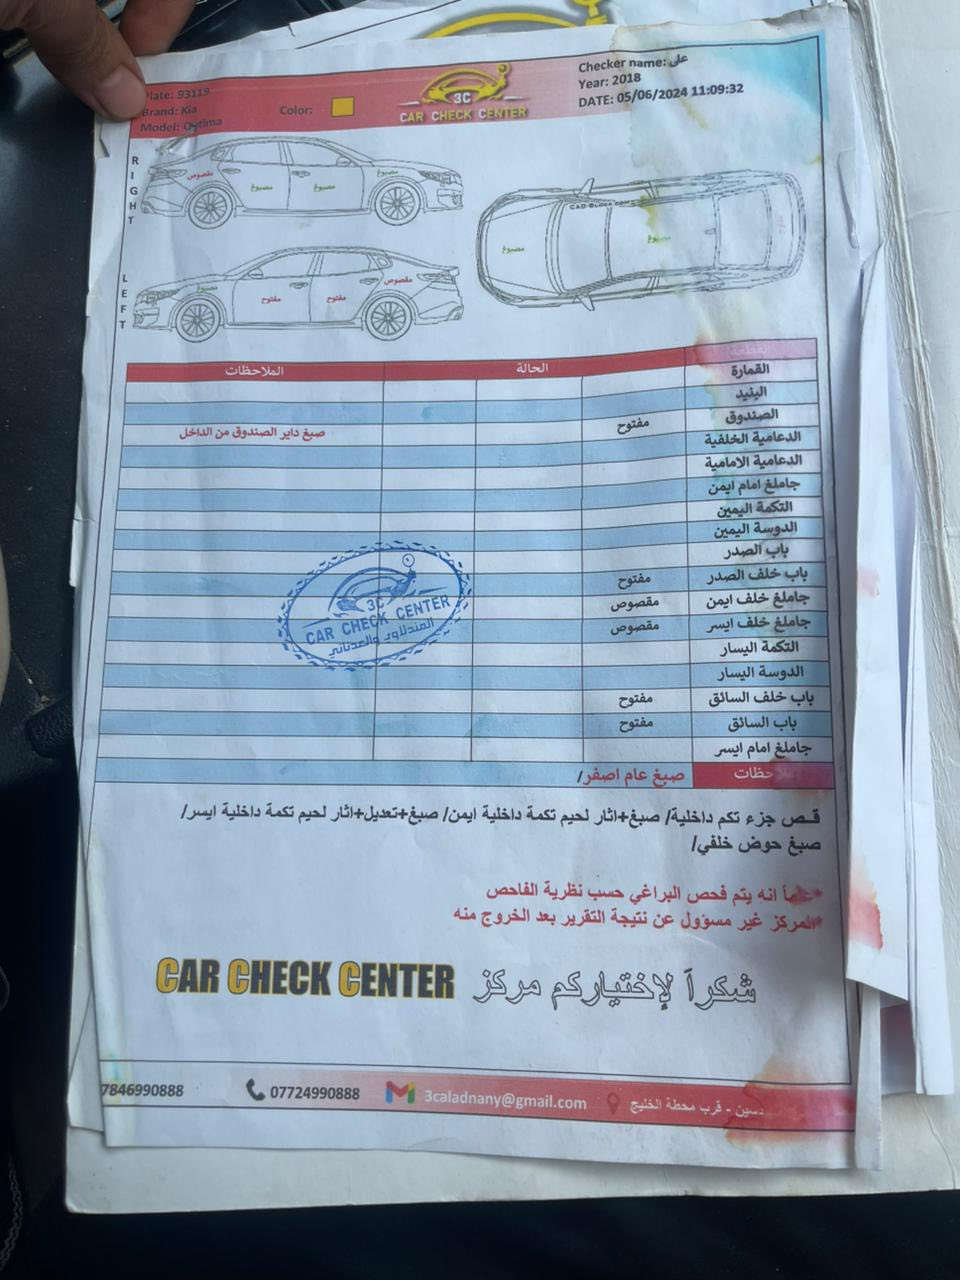 Plate: 93119
Brand: Kia
Model: Optima
Color:
3C
CAR CHECK CENTER
Checker name: علي
Year: 2018
DATE: 05/06/2024 11:09:32
RIGHT
مقصوص
مصبوغ
مصبوغ
مصبوغ
LEFT
مصبوغ
مفتوح
مفتوح
مقصوص
مصبوغ
مصبوغ
القطعة
الحالة
الملاحظات
القمارة
البنيد
الصندوق مفتوح صبغ داير الصندوق من الداخل
الدعامية الخلفية
الدعامية الامامية
جاملغ امام ايمن
التكمة اليمين
الدوسة اليمين
باب الصدر
باب خلف الصدر مفتوح
جاملغ خلف ايمن مقصوص
جاملغ خلف ايسر مقصوص
التكمة اليسار
الدوسة اليسار
باب خلف السائق مفتوح
باب السائق مفتوح
جاملغ امام ايسر
صبغ عام اصفر/
3C
CAR CHECK CENTER
قص جزء تكم داخلية/ صبغ+اثار لحيم تكمة داخلية ايمن/ صبغ+تعديل+اثار لحيم تكمة داخلية ايسر/
صبغ حوض خلفي/
*علماً انه يتم فحص البراغي حسب نظرية الفاحص
*المركز غير مسؤول عن نتيجة التقرير بعد الخروج منه
شكراً لإختياركم مركز CAR CHECK CENTER
7846990888
07724990888
3caladnany@gmail.com
قرب محطة الخليج